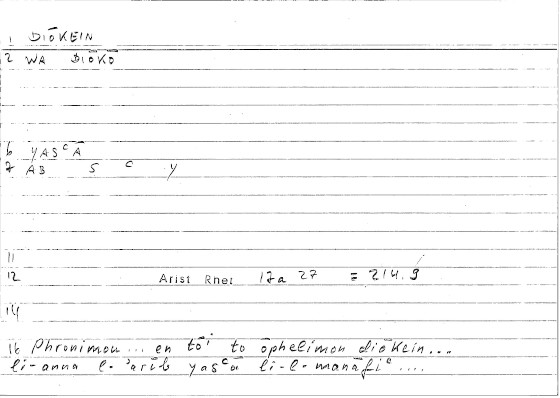 1 DIŌKEIN
2 WA DIŌKŌ
6 YASᶜĀ
7 AB S ᶜ Y
11
12 Arist Rhet 12a 27 = 214.9
14
16 Phronimou... en tōi to ōphelimon diōkein...
li-anna l-'arīb yasᶜā li-l-manāfiᶜ....